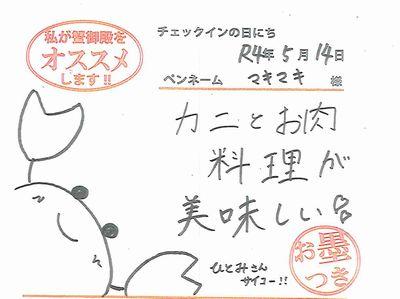 私が蟹御殿を
オススメ
します!!
チェックインの日にち
R4年5月14日
ペンネーム マキマキ 様
カニとお肉
料理が
美味しい
ひとみさん
サイコー!!
お墨
つき